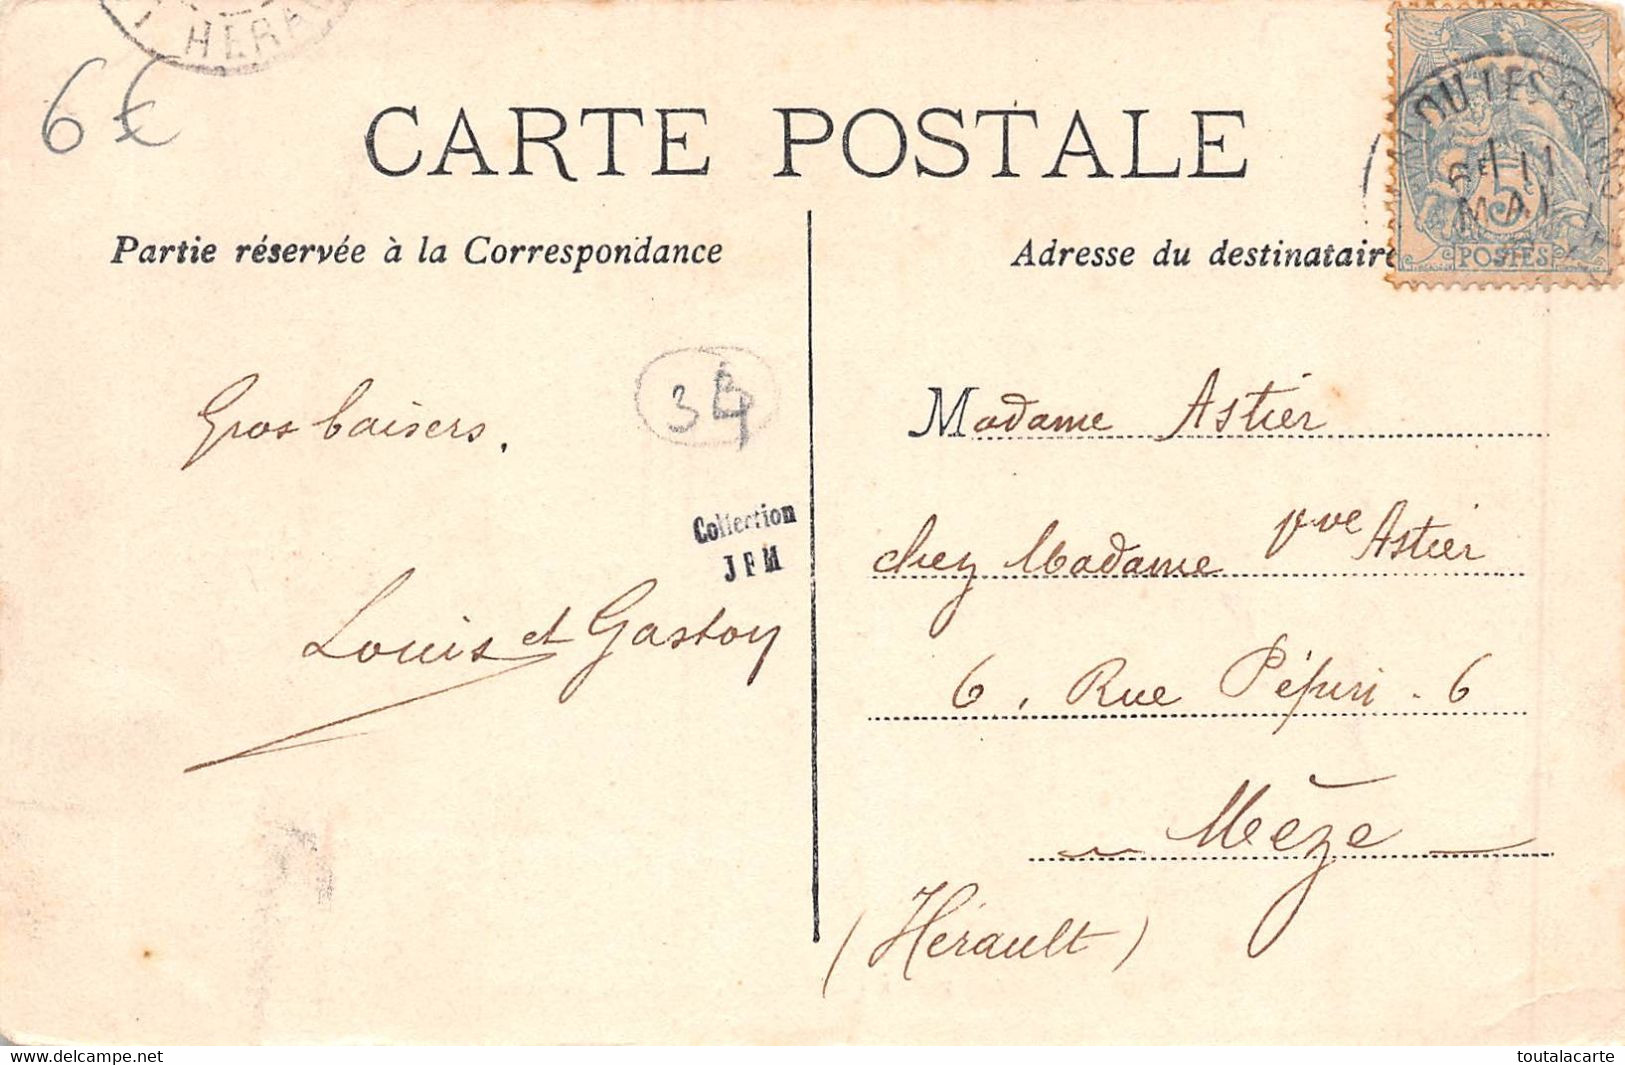 HÉRA
6 €
CARTE POSTALE
Partie réservée à la Correspondance
Adresse du destinataire
5c
POSTES
MAI
34
Gros baisers.
Collection
JFM
Louis et Gaston
Madame Astier
chez Madame Vve Astier
6, Rue Pépin . 6
Mèze
(Hérault)
www.delcampe.net
toutalacarte